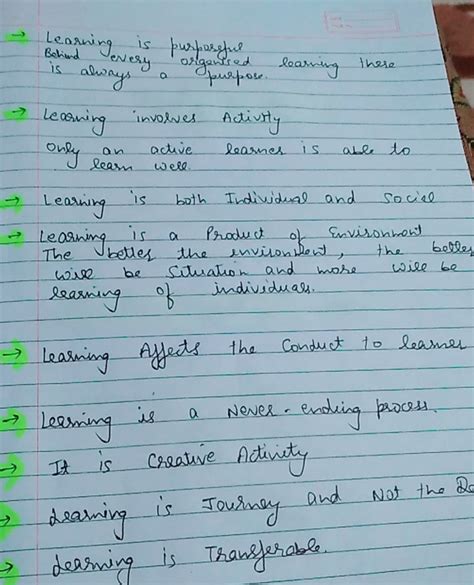 → Learning is purposeful
Behind every organised learning there
is always a purpose.
→ Learning involves Activity
only an active learner is able to
learn well.
→ Learning is both Individual and Social
→ Learning is a Product of Environment
The better the environment, the better
will be Situation and more will be
learning of individuals.
→ Learning Affects the Conduct to learner
→ Learning is a Never-ending process.
→ It is Creative Activity
→ Learning is Journey and Not the
→ Learning is Transferable.